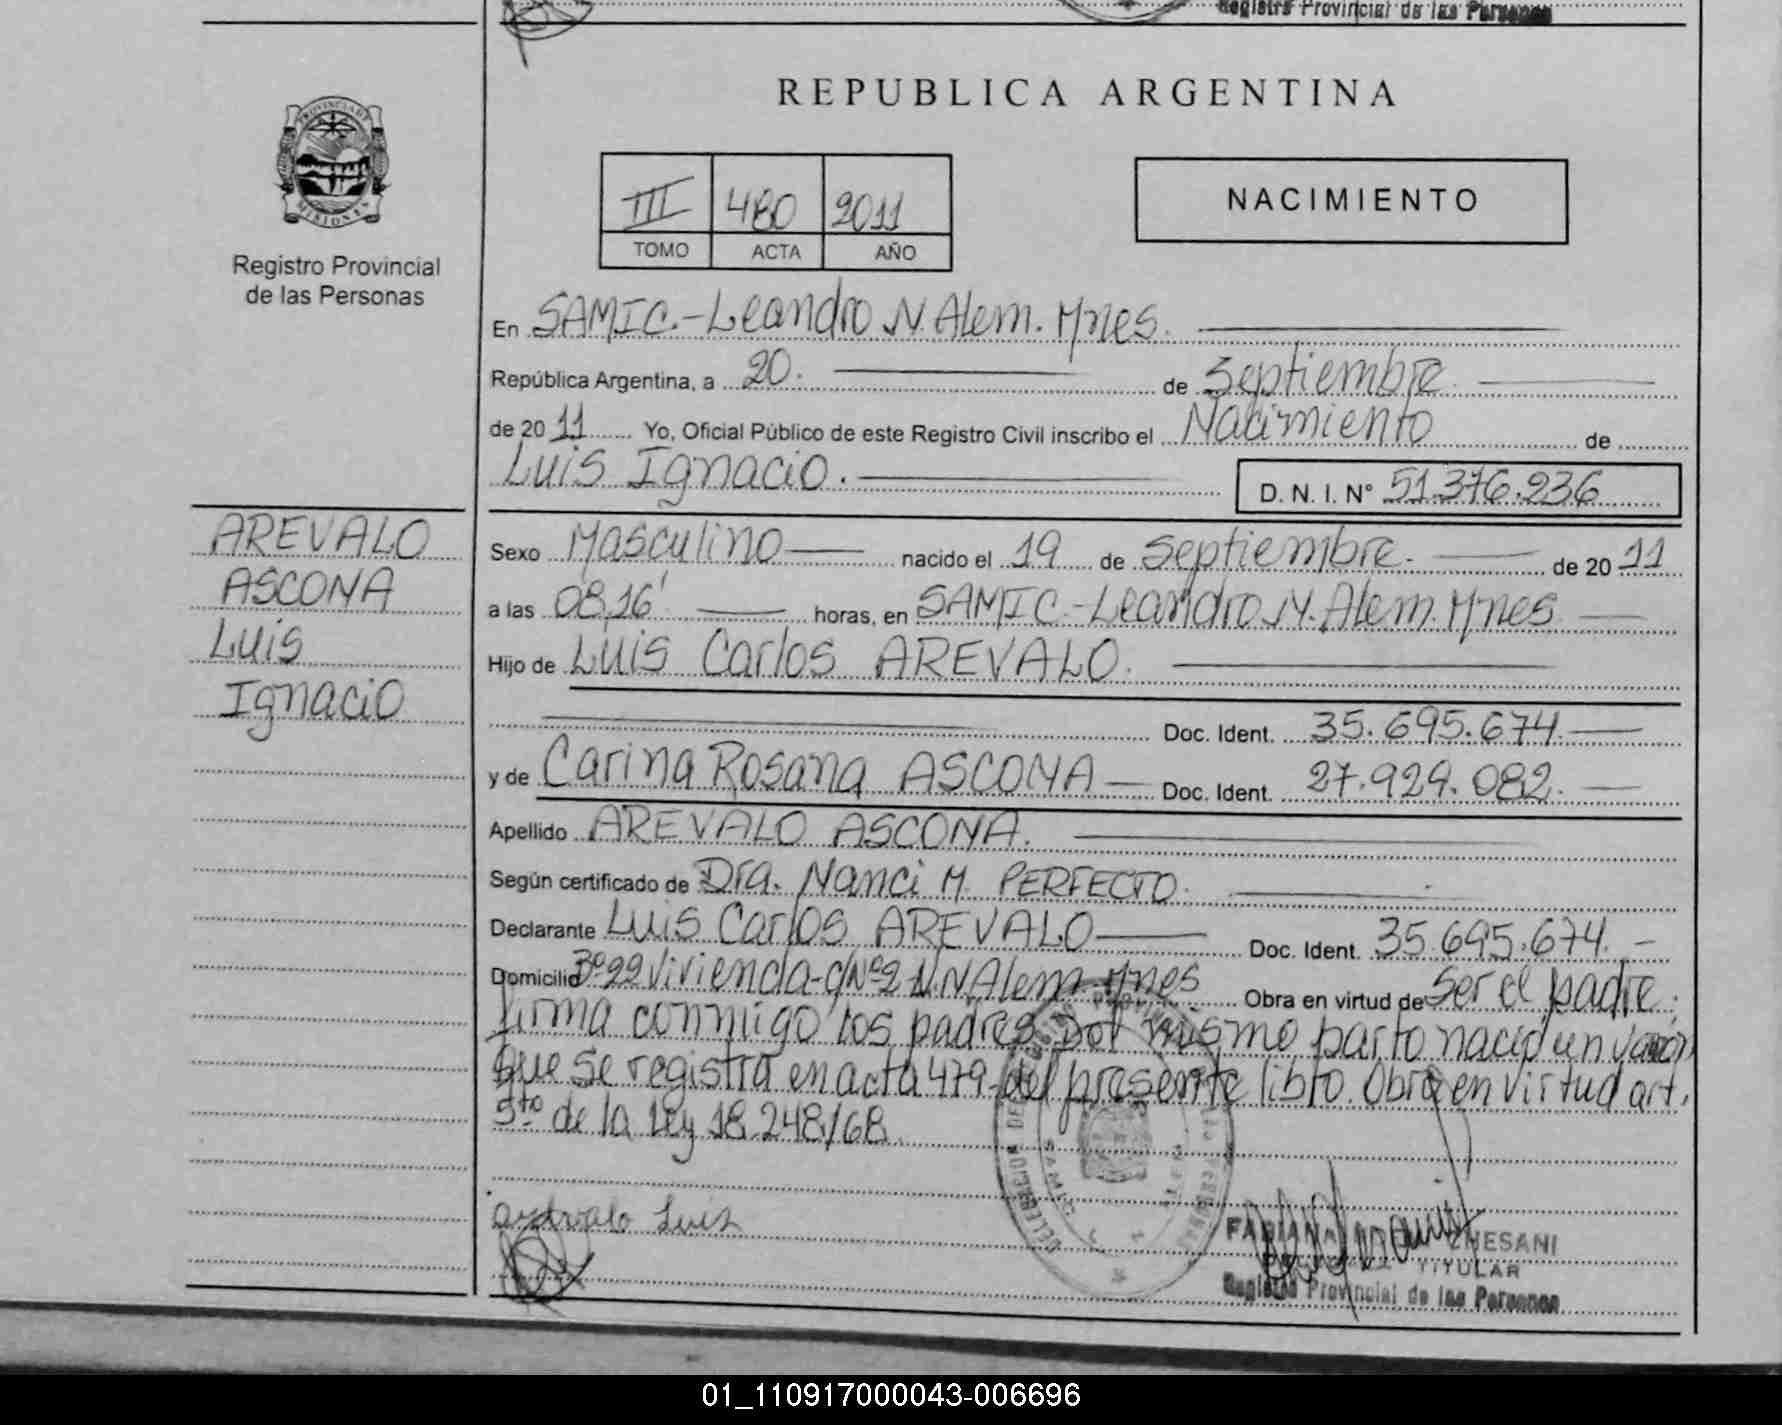 Registro Provincial de las Personas
REPUBLICA ARGENTINA
PROVINCIA DE
MISIONES
Registro Provincial
de las Personas
III 480 2011
TOMO ACTA AÑO
NACIMIENTO
En SAMIC.-Leandro N. Alem. Mnes.
República Argentina, a 20. de Septiembre.
de 2011 Yo, Oficial Público de este Registro Civil inscribo el Nacimiento de
Luis Ignacio.
D. N. I. Nº 51.376.236
AREVALO
ASCONA
Luis
Ignacio
Sexo Masculino nacido el 19 de Septiembre. de 2011
a las 08,16' horas, en SAMIC.-Leandro N. Alem. Mnes
Hijo de Luis Carlos AREVALO.
Doc. Ident. 35.695.674.
y de Carina Rosana ASCONA Doc. Ident. 27.929.082.
Apellido AREVALO ASCONA.
Según certificado de Dra. Nanci M. PERFECTO.
Declarante Luis Carlos AREVALO Doc. Ident. 35.695.674.
Domicilio Bº 22 Vivienda-c/Nº2 L.N.Alem-Mnes Obra en virtud de Ser el padre.
firma conmigo los padres por mismo parto nació un varón
que se registra en acta 479-del presente libro. Obra en virtud art.
5to de la Ley 18.248/68.
Arevalo Luis
ZHESANI
TITULAR
Registro Provincial de las Personas
01_110917000043-006696